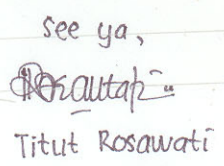 See ya,
Titut Rosawati